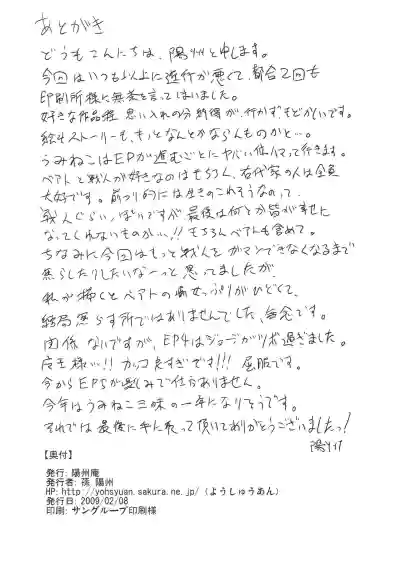 あとがき
どうもこんにちは、陽州と申します。
今回はいつも以上に進行が悪くて、都合2回も
印刷所様に無茶を言ってしまいました。
好きな作品程、思い入れの分納得が行かずもどかしいです。
絵もストーリーも、もっとなんとかならんものかと…。
うみねこはEPが進むごとにヤバい位ハマって行きます。
ベアトと戦人が好きなのはもちろん、右代家の人は全員
大好です。 前フリ的には生きのこれそうなのって、
戦人ぐらいっぽいですが最後は何とか皆が幸せに
なってくれないものかっ!! もちろんベアトも含めて。
ちなみに今回はもっと戦人を ガマンできなくなるまで
焦らしたりしたいなーっと思ってましたが、
私が描くとベアトの っぷりがひどくて、
結局焦らす所ではありませんでした、無念です。
関係ないですが、EP4はジョージがツボ過ぎました。
様…!! カッコ良すぎです!!! 屈服です。
今からEP5が楽しみで仕方ありません。
今年はうみねこ三昧の一年になりそうです。
それでは最後に手に取って頂いてありがとうございましたっ!
陽州
【奥付】
発行: 陽州庵
発行者: 篠 陽州
HP: http://yohsyuan.sakura.ne.jp/ (ようしゅうあん)
発行日: 2009/02/08
印刷: サングループ印刷様